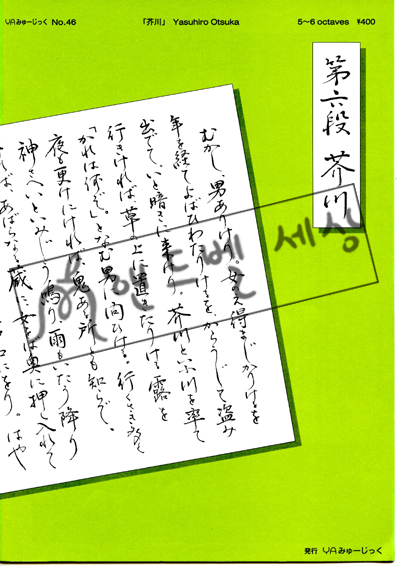 YAみゅーじっく No.46 「芥川」 Yasuhiro Otsuka 5〜6 octaves ¥400
第六段 芥川
むかし、男ありけり。女のえ得まじかりけるを
年を経てよばひわたりけるを、からうじて盗み
出でて、いと暗きに来けり。芥川といふ川を率て
行きければ、草の上に置きたりける露を
「かれは何ぞ」となむ男に問ひける。行くさき多く
夜も更けにければ、鬼ある所とも知らで、
神さへいといみじう鳴り、雨もいたう降り
れば、あばらなる蔵に、女を奥に押し入れて
口にをり。はや
핸드벨 세상
発行 YAみゅーじっく